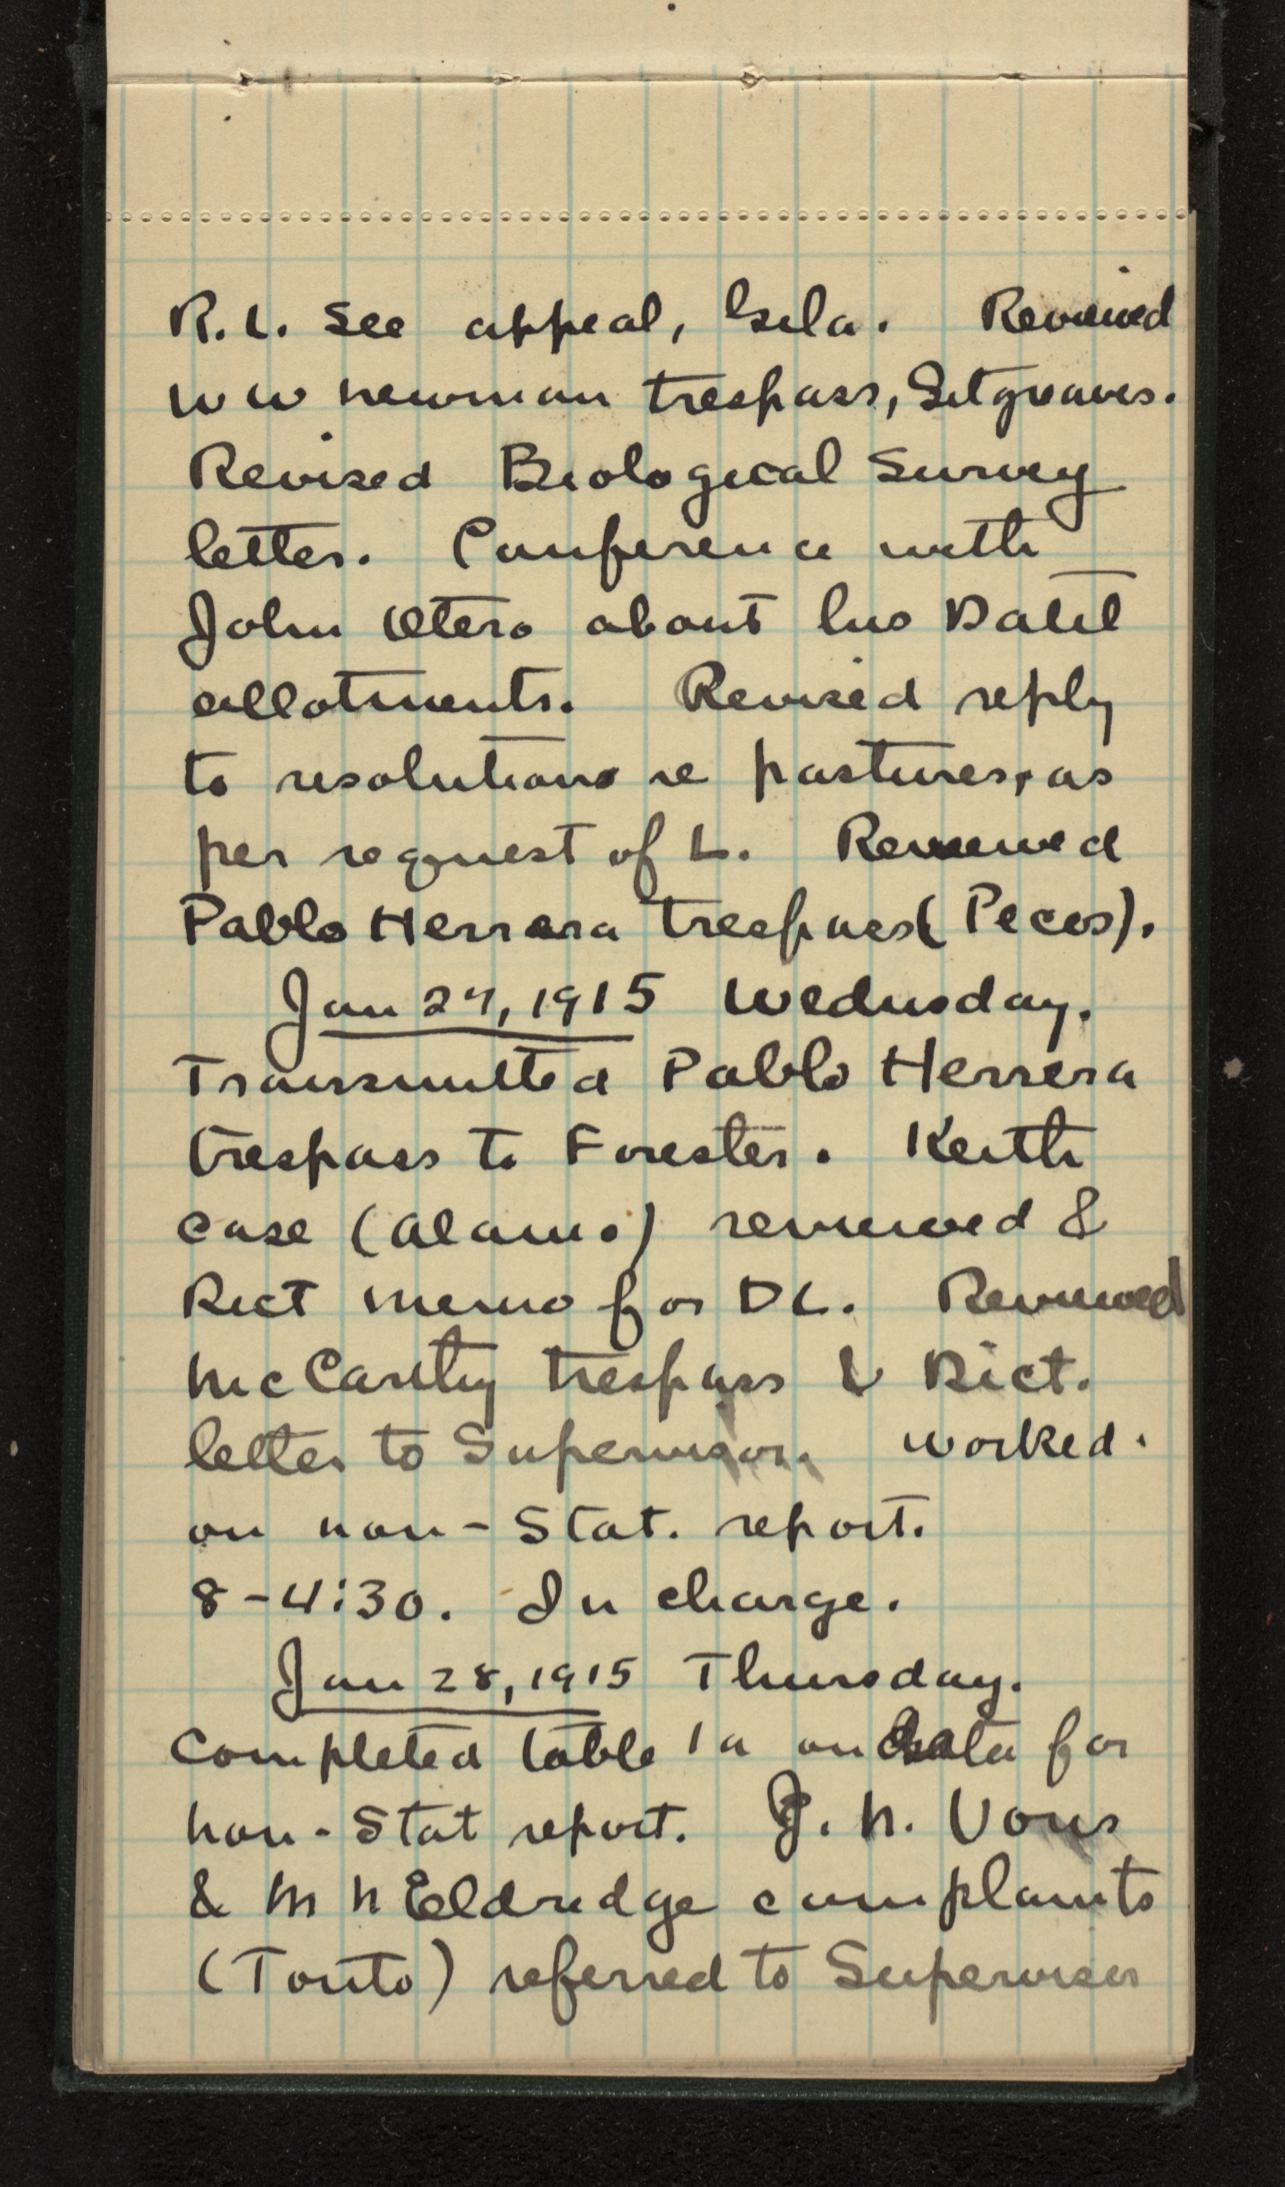 R.L. See appeal, Gila. Reviewed
W W Newman trespass, Sitgreaves.
Revised Biological Survey
letter. Conference with
John Otero about his Datil
allotments. Revised reply
to resolutions re pastures, as
per request of L. Reviewed
Pablo Herrera trespass (Pecos).
Jan 27, 1915 Wednesday.
Transmitted Pablo Herrera
trespass to Forester. Keith
case (Alamo) reviewed &
Dict memo for DL. Reviewed
McCarthy trespass & Dict.
letter to Supervisor. Worked
on non-Stat. report.
8-4:30. In charge.
Jan 28, 1915 Thursday.
Completed table 1a on data for
non-Stat report. J. N. Voris
& M N Eldredge complaints
(Tonto) referred to Supervisor